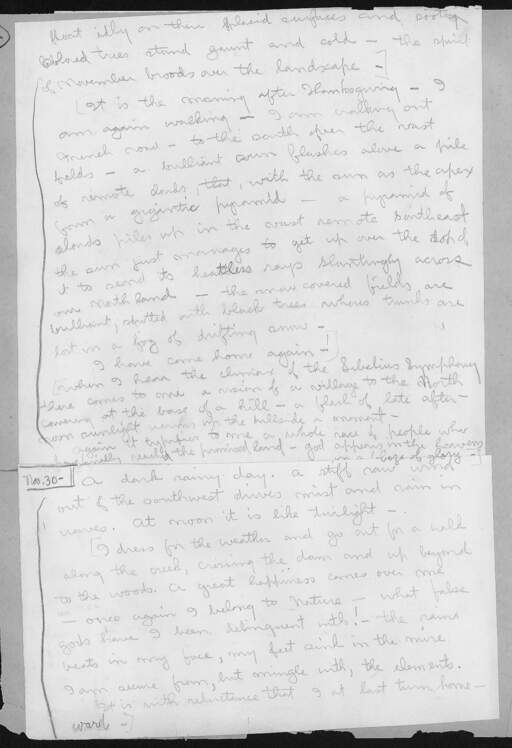 float idly on their placid surfaces and sooty
colored trees stand gaunt and cold — the spirit
of November broods over the landscape —]
[It is the morning after Thanksgiving — I
am again walking — I am walking out
French road — to the south over the vast
fields — a brilliant sun flashes above a pile
of remote clouds that, with the sun as the apex
form a gigantic pyramid — a pyramid of
clouds piles up in the vast remote southeast
the sun just manages to get up over the top of
it to send its heatless rays slantingly across
our north land — the snow covered fields are
brilliant, spotted with black trees whose trunks are
lost in a fog of drifting snow —
I have come home again —!]
[When I hear the climax of the Sibelius Symphony
there comes to me a vision of a village to the North
cowering at the base of a hill — a of late after-
noon sunlight the hillside a moment —
again it typifies to me a whole race of people who
finally the promised land — God appears in the heavens
in a blaze of glory —]
Nov. 30 — A dark rainy day. a stiff raw wind
out of the southwest drives mist and rain in
waves. At noon it is like twilight —
[I dress for the weather and go out for a walk
along the creek, crossing the dam and up beyond
to the woods. A great happiness comes over me
— once again I belong to Nature — what false
gods have I been delinquent with! — the rain
beats in my face, my feet sink in the mire
I am secure from, but mingle with, the elements.
It is with reluctance that I at last turn home-
ward —]